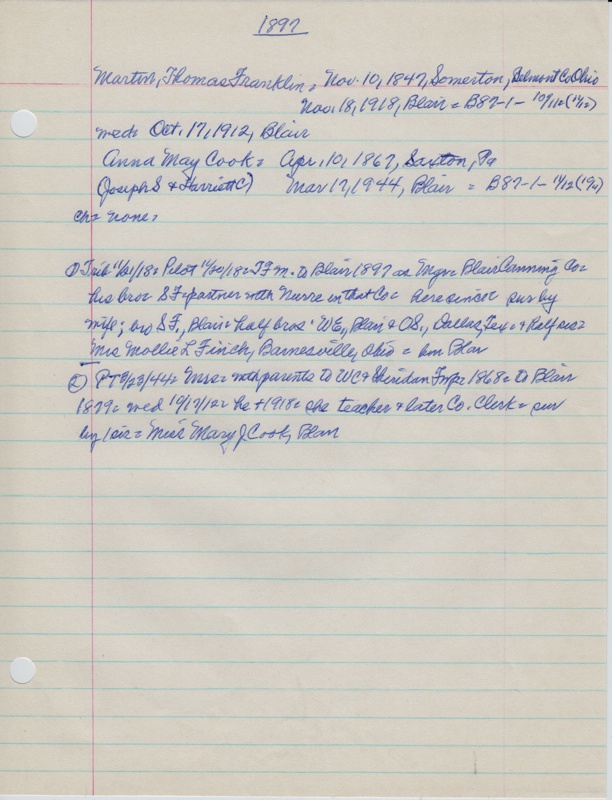 1897
Martin, Thomas Franklin = Nov. 10, 1847, Somerton, Belmont Co Ohio
Nov. 18, 1918, Blair = B87-1- 10/12 (1/12)
wed = Oct. 17, 1912, Blair
Anna May Cook = Apr. 10, 1867, Saxton, Pa
(Joseph S + Harriett C) Mar 17, 1944, Blair = B87-1-
ch = none =
① Trib 11/21/18 = Pilot 11/20/18 = TF m. to Blair 1897 as Mgr = Blair Canning Co =
his bro = SF = partner with Nurre in that Co = here since = sur by
wife; bro SF, Blair = half bros = WE, Blair & OS, Dallas, Tex = + half sis =
Mrs Mollie L Finch, Barnesville, Ohio = bur Blair
② PT 3/23/44 = Mrs = with parents to WC + Sheridan Twp = 1868 = to Blair
1879 = wed 10/17/12 = he + 1918 = she teacher + later Co. Clerk = sur
by 1 sis = Miss Mary J Cook, Blair